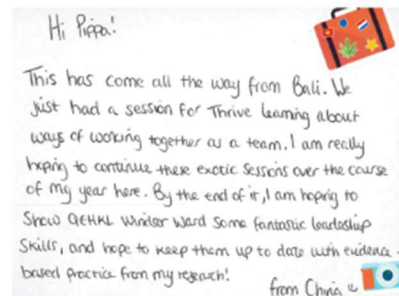 Hi Pippa!
This has come all the way from Bali. We
just had a session for Thrive learning about
ways of working together as a team. I am really
hoping to continue these exotic sessions over the course
of my year here. By the end of it, I am hoping to
Show QEHKL Windsor Ward some fantastic leadership
Skills, and hope to keep them up to date with evidence
based practice from my research!
from China